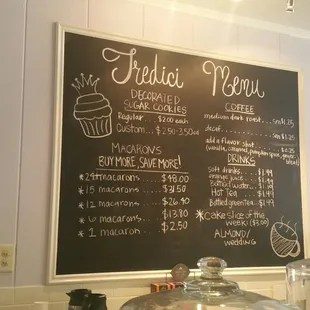 Tredici Menu
DECORATED
SUGAR COOKIES
Regular... $2.00 each
Custom... $2.50-3.50ea
MACARONS
BUY MORE, SAVE MORE!
*24+ macarons... $48.00
*15 macarons... $31.50
*12 macarons... $26.40
*6 macarons... $13.80
*1 macaron... $2.50
COFFEE
medium dark roast... sm $1.75
decaf... sm $1.25
add a flavor shot... $0.25
(vanilla, caramel, pumpkin spice,
DRINKS
Soft drinks... $1.49
orange juice... $1.99
Bottled water... $1.49
Hot Tea... $1.49
Bottled green tea... $1.99
*cake slice of the
week: ($3.00)
ALMOND/
wedding